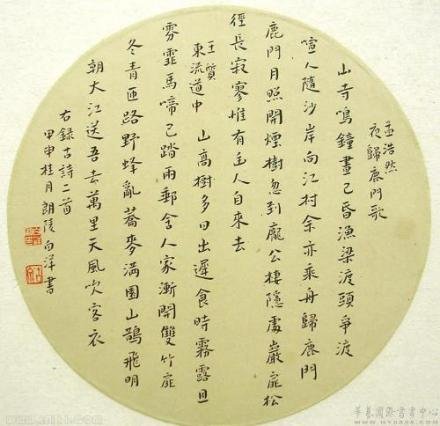 孟浩然
夜歸鹿門歌
山寺鳴鐘晝已昏漁梁渡頭爭渡
喧人隨沙岸向江村余亦乘舟歸鹿門
鹿門月照開煙樹忽到龐公棲隱處巖扉松
徑長寂寥惟有主人自來去
王質
東流道中 山高樹多日出遲食時霧露且
雰霏馬啼已踏兩郵舍人家漸開雙竹扉
冬青匝路野蜂亂蕎麥滿園山鵲飛明
朝大江送吾去萬里天風吹客衣
右錄古詩二首
甲申桂月朗陵向洋書